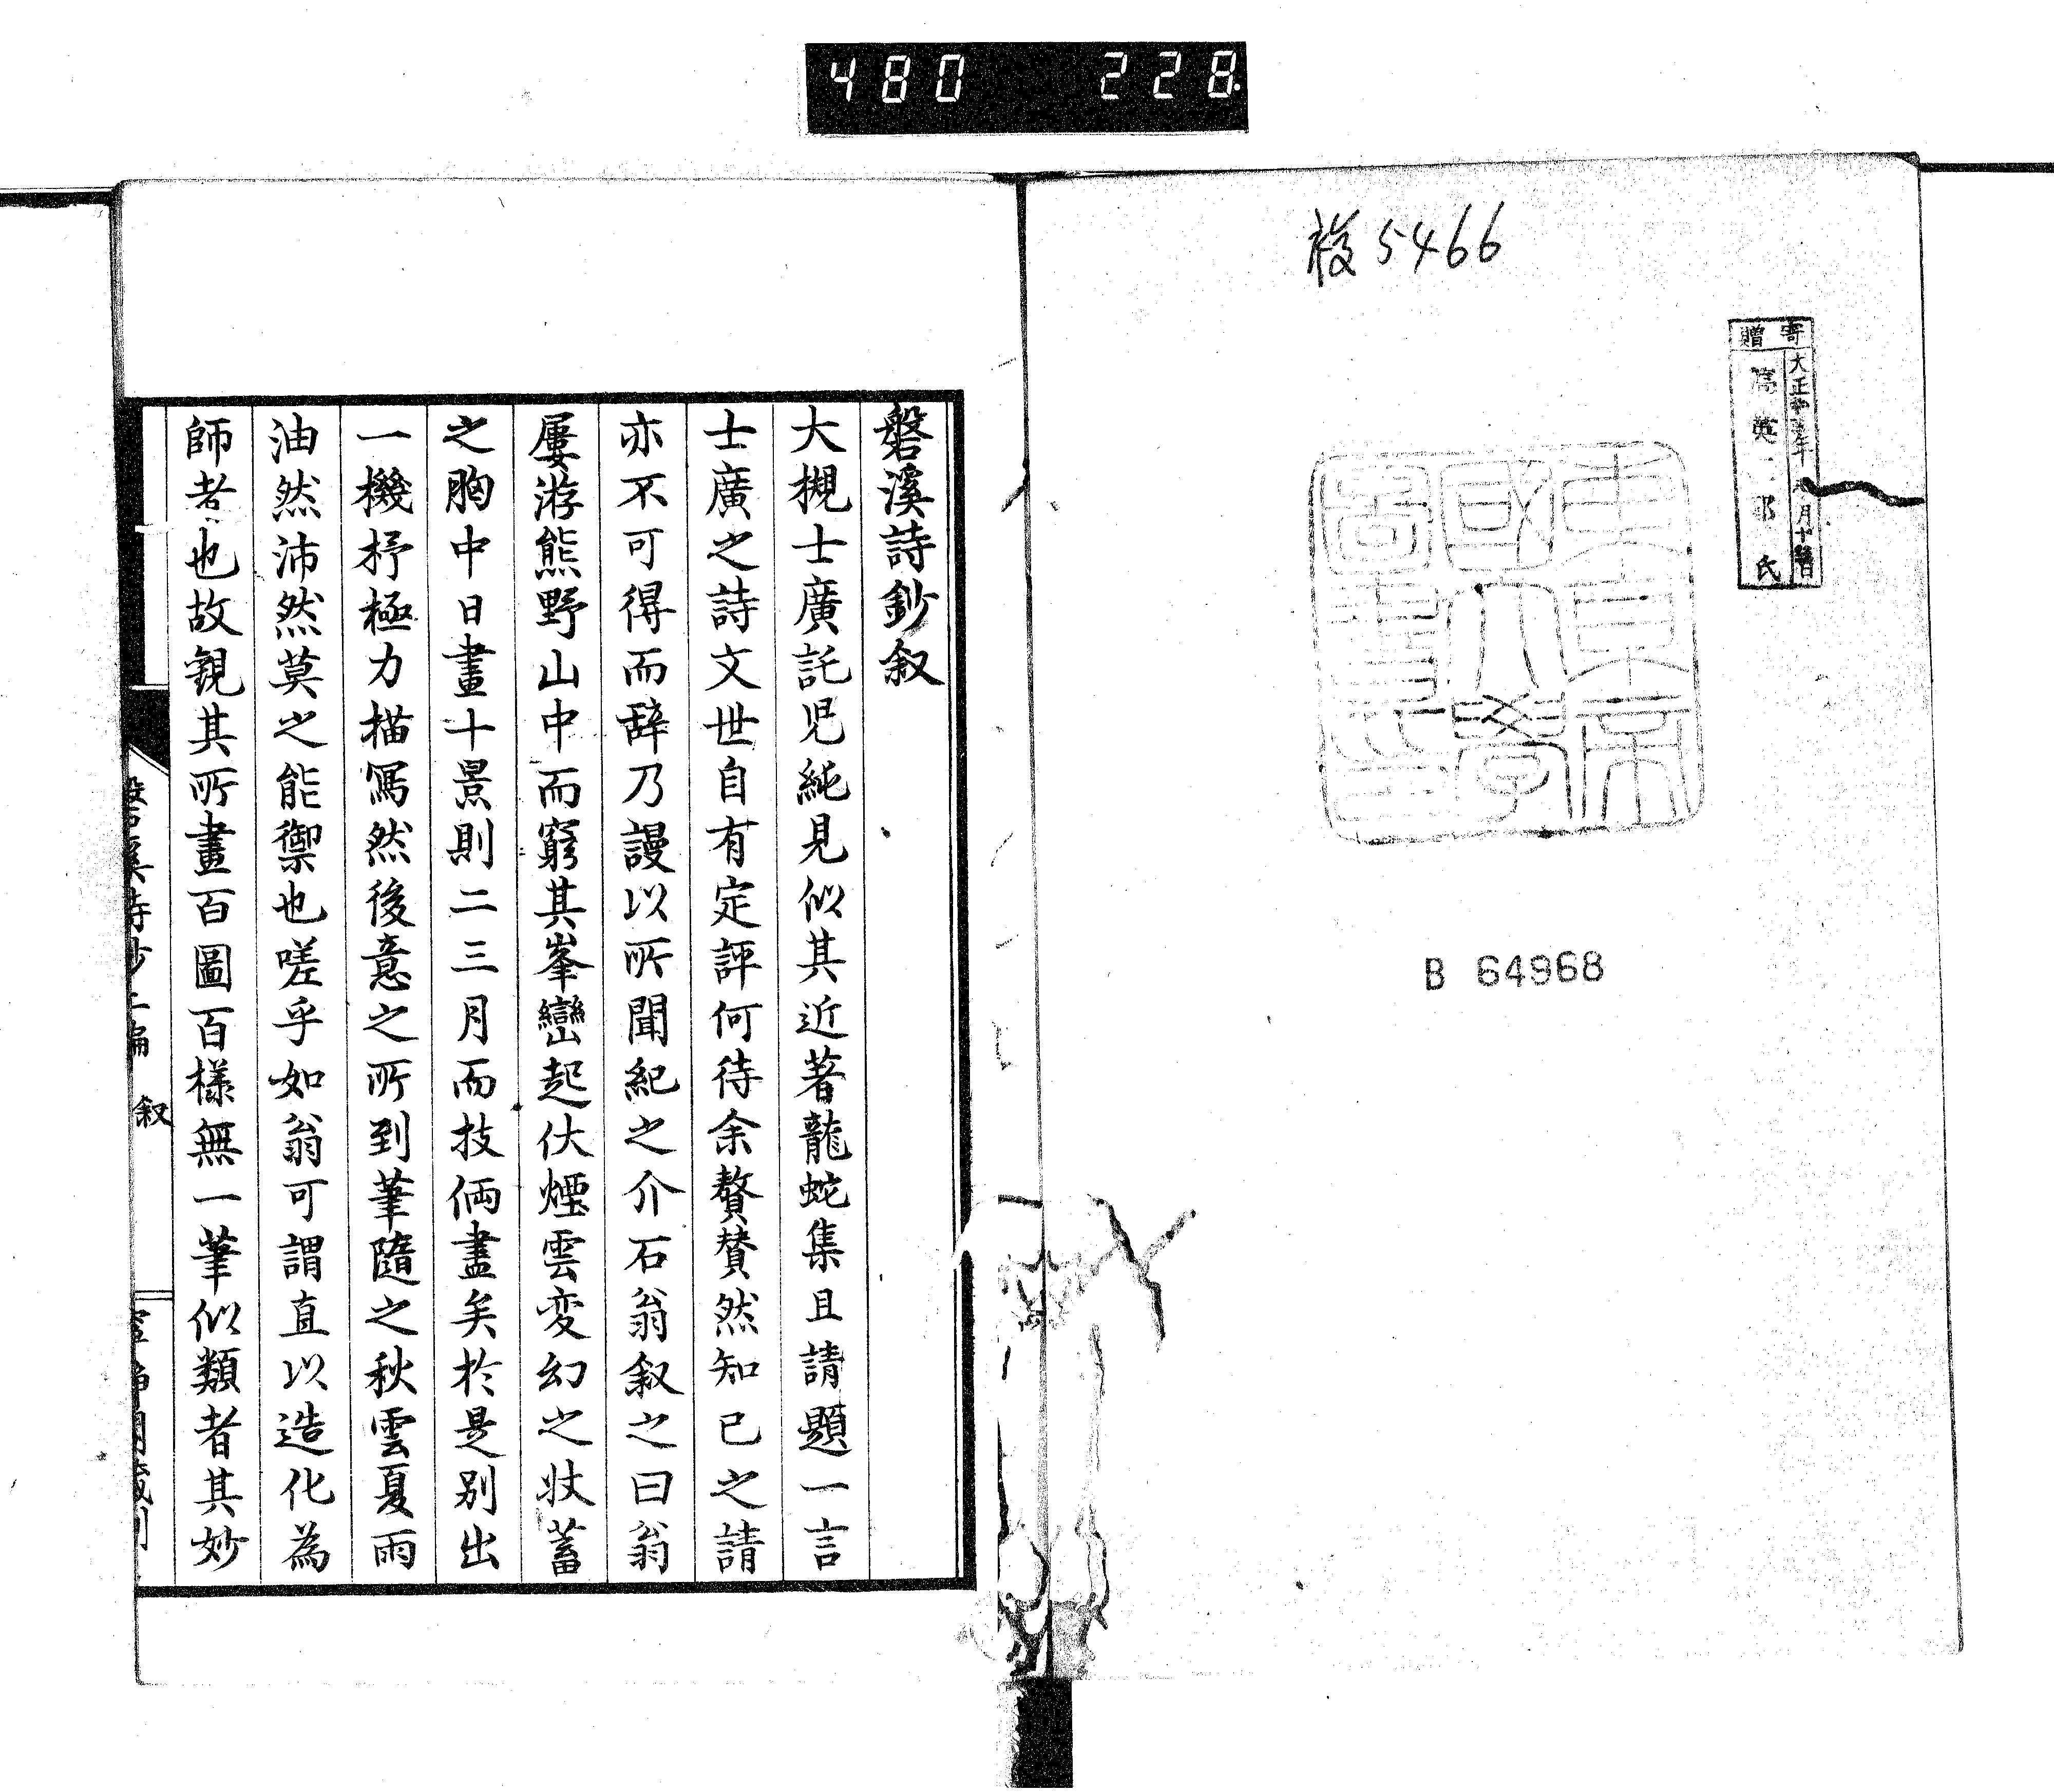 480 228
複5466
寄贈
大正
氏
東京帝
國大學
圖書印
B 64968
磐溪詩鈔叙
大槻士廣託児純見似其近著龍蛇集且請題一言
士廣之詩文世自有定評何待余贅賛然知已之請
亦不可得而辞乃謾以所聞紀之介石翁叙之曰翁
屢游熊野山中而窮其峯巒起伏煙雲変幻之状蓄
之胸中日畫十景則二三月而技倆盡矣於是別出
一機杼極力描寫然後意之所到筆隨之秋雲夏雨
油然沛然莫之能禦也嗟乎如翁可謂直以造化為
師者也故観其所畫百圖百樣無一筆似類者其妙
叙